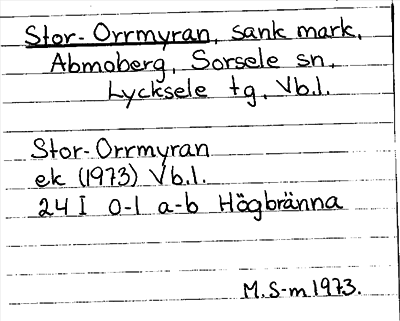 Stor-Orrmyran, sank mark,
Abmoberg, Sorsele sn,
Lycksele tg, Vb.l.
Stor-Orrmyran
ek (1973) Vb.l.
24 I 0-1 a-b Högbränna
M.S-m 1973.